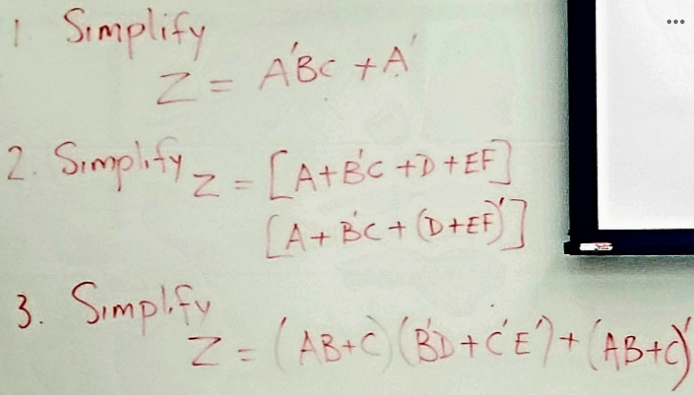 1 Simplify
Z = A'BC + A'
2. Simplify Z = [A+B'C +D+EF]
[A+B'C+(D+EF)']
3. Simplify
Z = (AB+C)(B'D+C'E')+(AB+C)'